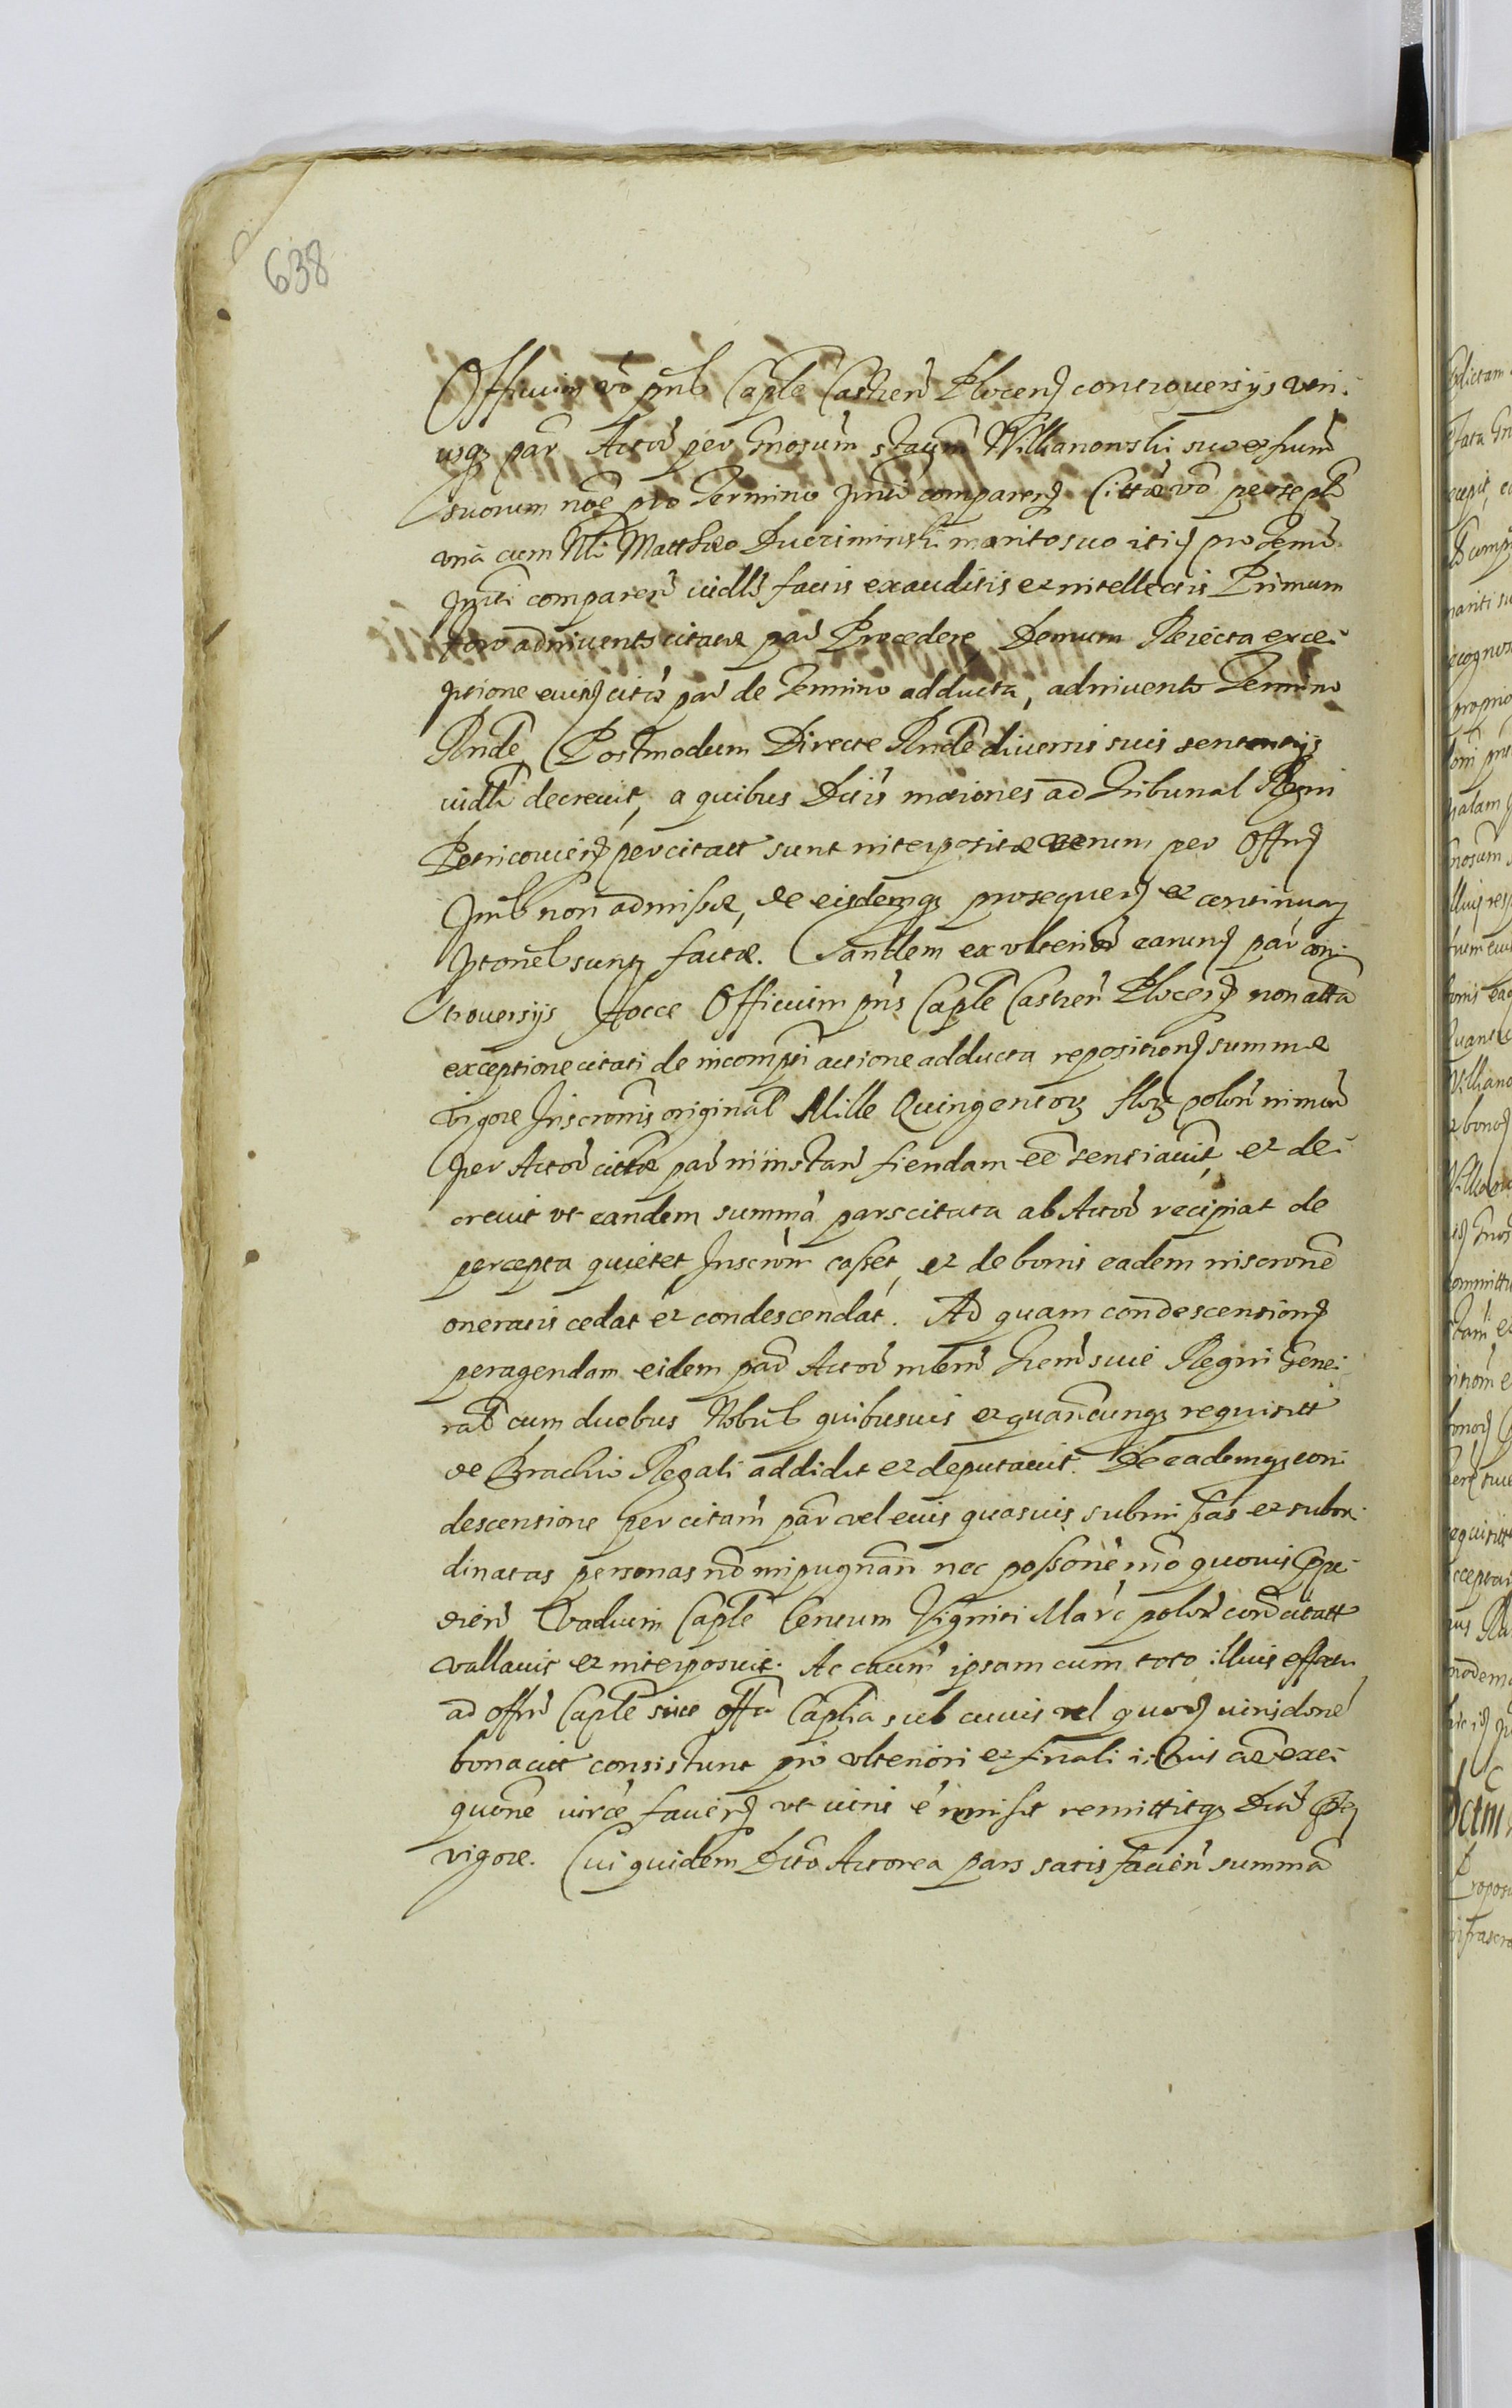 638
Officium vo pnls Caple Castren Plocen controuersijs utri-
usq par Actor per Gnosum Stanm Wilkanowski suo et frum
suorum noe pro Termino pnti comparen Cittae vo per se ple
una cum Nli Mattheo Ducziminski marito suo itid pro termo
pnti comparen uidlt factis exauditis et intellectis Primum
foro adinuento citatae par Procedere Demum Reiecta exce-
ptione euisd citae par de Termino adducta, adinuento Termino
Rnde Postmodum Directe Rnde diuersis suis sententijs
uidlt decreuit, a quibus Dctis motiones ad Tribunal Regni
Petricouien per citatt sunt interpositae verum per Offm
pnls non admissae, de eisdemq prosequen et continuan
ptonel sunt factae. Tandem ex ulteriori earund par con-
trouersijs Hocce Officium pns Caple Castren Plocen non atta
exceptione citati de incompti actione adducta reposition summae
vigore Inscronis original Mille Quingentor flor polon in mon
per Actor cittae par in instan fiendam ee sentiauit, et de-
creuit ut eandem summa pars citata ab Actor recipiat de
percepta quietet Inscrom casset, et de bonis eadem inscrone
oneratis cedat et condescendat. Ad quam condescension
peragendam eidem par Actor mtem Trem suie Regni Gene-
ral cum duobus Nobil quibusuis et quancunq requisitt
de Brachio Regali addidit et deputauit. De eademq con-
descensione per citam par vel euis quasuis submissas et subor-
dinatas personas no impugnan nec possone mo quouis Expe-
dien Vadium Caple Centum Viginti Marc polon con citatt
vallauit et interposuit. Ac caum ipsam cum toto illius effctu
ad offm Caple siue offa Caplia sub cuius vel quor iurisdone
bona citt consistunt pro ulteriori et finali i
quone uirce fauen ut iuris e remisit remittitq Dcti
vigore. Cui quidem Dcto Actorea pars satisfacien summa